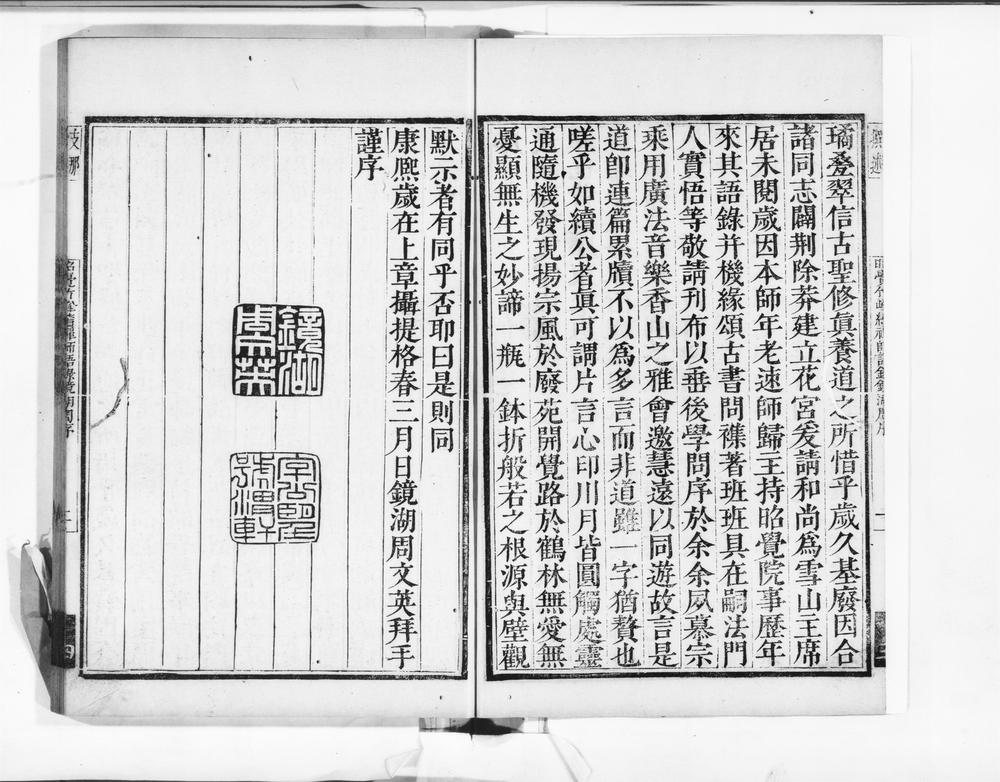 璚叠翠信古聖修眞養道之所惜乎歲久基廢因合
諸同志闢荆除莽建立花宮爰請和尚爲雪山王席
居未閱歲因本師年老速師歸王持昭覺院事歷年
來其語錄并機緣頌古書問襍著班班具在嗣法門
人實悟等敬請刊布以垂後學問序於余余夙慕宗
乘用廣法音樂香山之雅會邀慧遠以同遊故言是
道卽連篇累牘不以爲多言而非道雖一字猶贅也
嗟乎如續公者眞可謂片言心印川月皆圓觸處靈
通隨機發現揚宗風於廢苑開覺路於鶴林無愛無
憂顯無生之妙諦一瓶一鉢折般若之根源與壁觀
默示者有同乎否耶曰是則同
康熙歲在上章攝提格春三月日鏡湖周文英拜手
謹序
鏡湖
周文英
字公
號渭軒
支那
昭覺竹峰續禪師語錄鏡湖周序
四